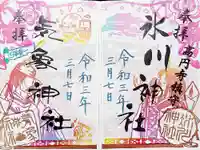 奉拝
高円寺鎮守
氷川神社
令和三年
三月七日
奉拝
気象神社
令和三年
三月七日